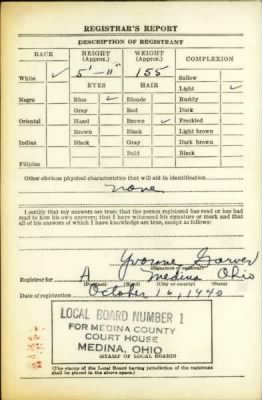 REGISTRAR'S REPORT
DESCRIPTION OF REGISTRANT
RACE HEIGHT (Approx.) WEIGHT (Approx.) COMPLEXION
White ✓ 5'-11" 155 Sallow
EYES HAIR Light ✓
Negro Blue ✓ Blonde Ruddy
Gray Red Dark
Oriental Hazel Brown ✓ Freckled
Brown Black Light brown
Indian Black Gray Dark brown
Bald Black
Filipino
Other obvious physical characteristics that will aid in identification
none
I certify that my answers are true; that the person registered has read or has had
read to him his own answers; that I have witnessed his signature or mark and that
all of his answers of which I have knowledge are true, except as follows:
Yvonne Garver
(Signature of registrar)
Registrar for A Medina Ohio
(Precinct) (City or county) (State)
Date of registration October 16, 1940
LOCAL BOARD NUMBER 1
FOR MEDINA COUNTY
COURT HOUSE
MEDINA, OHIO
(STAMP OF LOCAL BOARD)
(The stamp of the Local Board having jurisdiction of the registrant
shall be placed in the above space.)